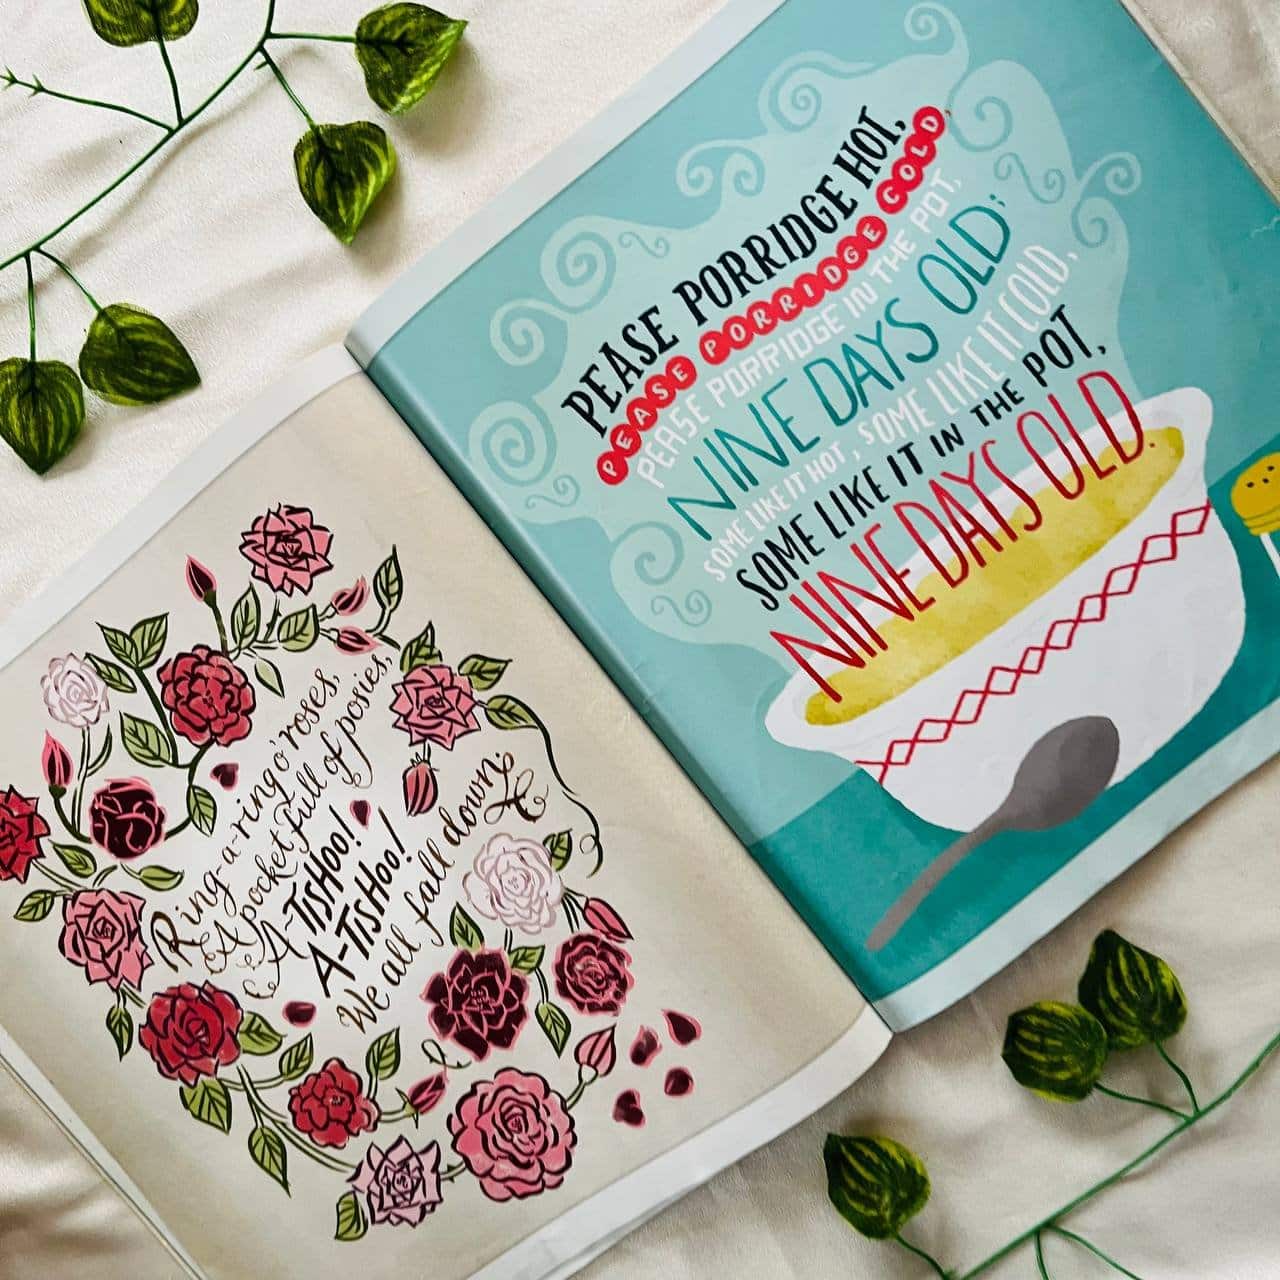 Ring-a-ring o' roses,
A pocket full of posies,
A-TISHOO!
A-TISHOO!
We all fall down.
PEASE PORRIDGE HOT,
PEASE PORRIDGE COLD,
PEASE PORRIDGE IN THE POT,
NINE DAYS OLD;
SOME LIKE IT HOT, SOME LIKE IT COLD,
SOME LIKE IT IN THE POT,
NINE DAYS OLD.